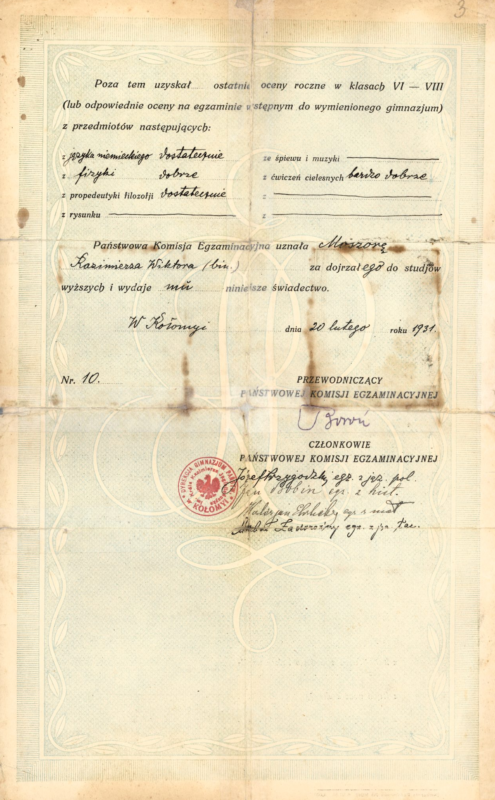 3
Poza tem uzyskał ostatnie oceny roczne w klasach VI — VIII
(lub odpowiednie oceny na egzaminie wstępnym do wymienionego gimnazjum)
z przedmiotów następujących:
z języka niemieckiego dostatecznie ze śpiewu i muzyki
z fizyki dobrze z ćwiczeń cielesnych bardzo dobrze
z propedeutyki filozofji dostatecznie z
z rysunku z
Państwowa Komisja Egzaminacyjna uznała Moszorę
Kazimierza Wiktora (bin.) za dojrzałego do studjów
wyższych i wydaje mu niniejsze świadectwo.
W Kołomyi dnia 20 lutego roku 1931
Nr. 10. PRZEWODNICZĄCY
PAŃSTWOWEJ KOMISJI EGZAMINACYJNEJ
CZŁONKOWIE
PAŃSTWOWEJ KOMISJI EGZAMINACYJNEJ
Józef Przygodzki, egz. z jęz. pol.
Bobin eg. z hist.
eg. z mat
egz. z jęz. łac.
DYREKCJA GIMNAZJUM PAŃSTW.
KOŁOMYI